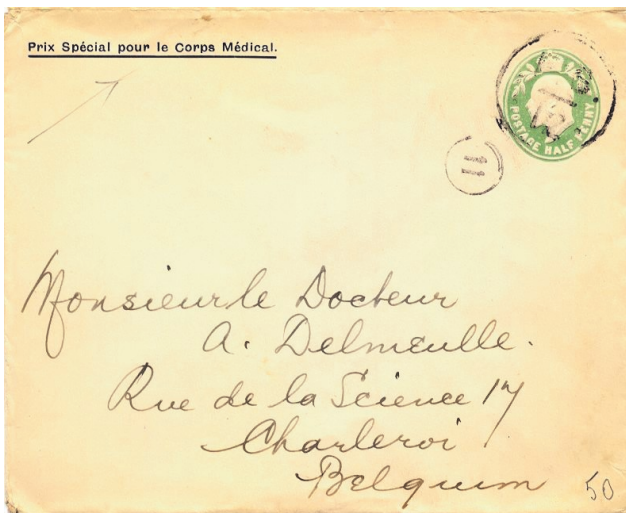 Prix Spécial pour le Corps Médical.
POSTAGE HALF PENNY
11
Monsieur le Docteur
A. Delmeulle.
Rue de la Science 17
Charleroi
Belgium
50